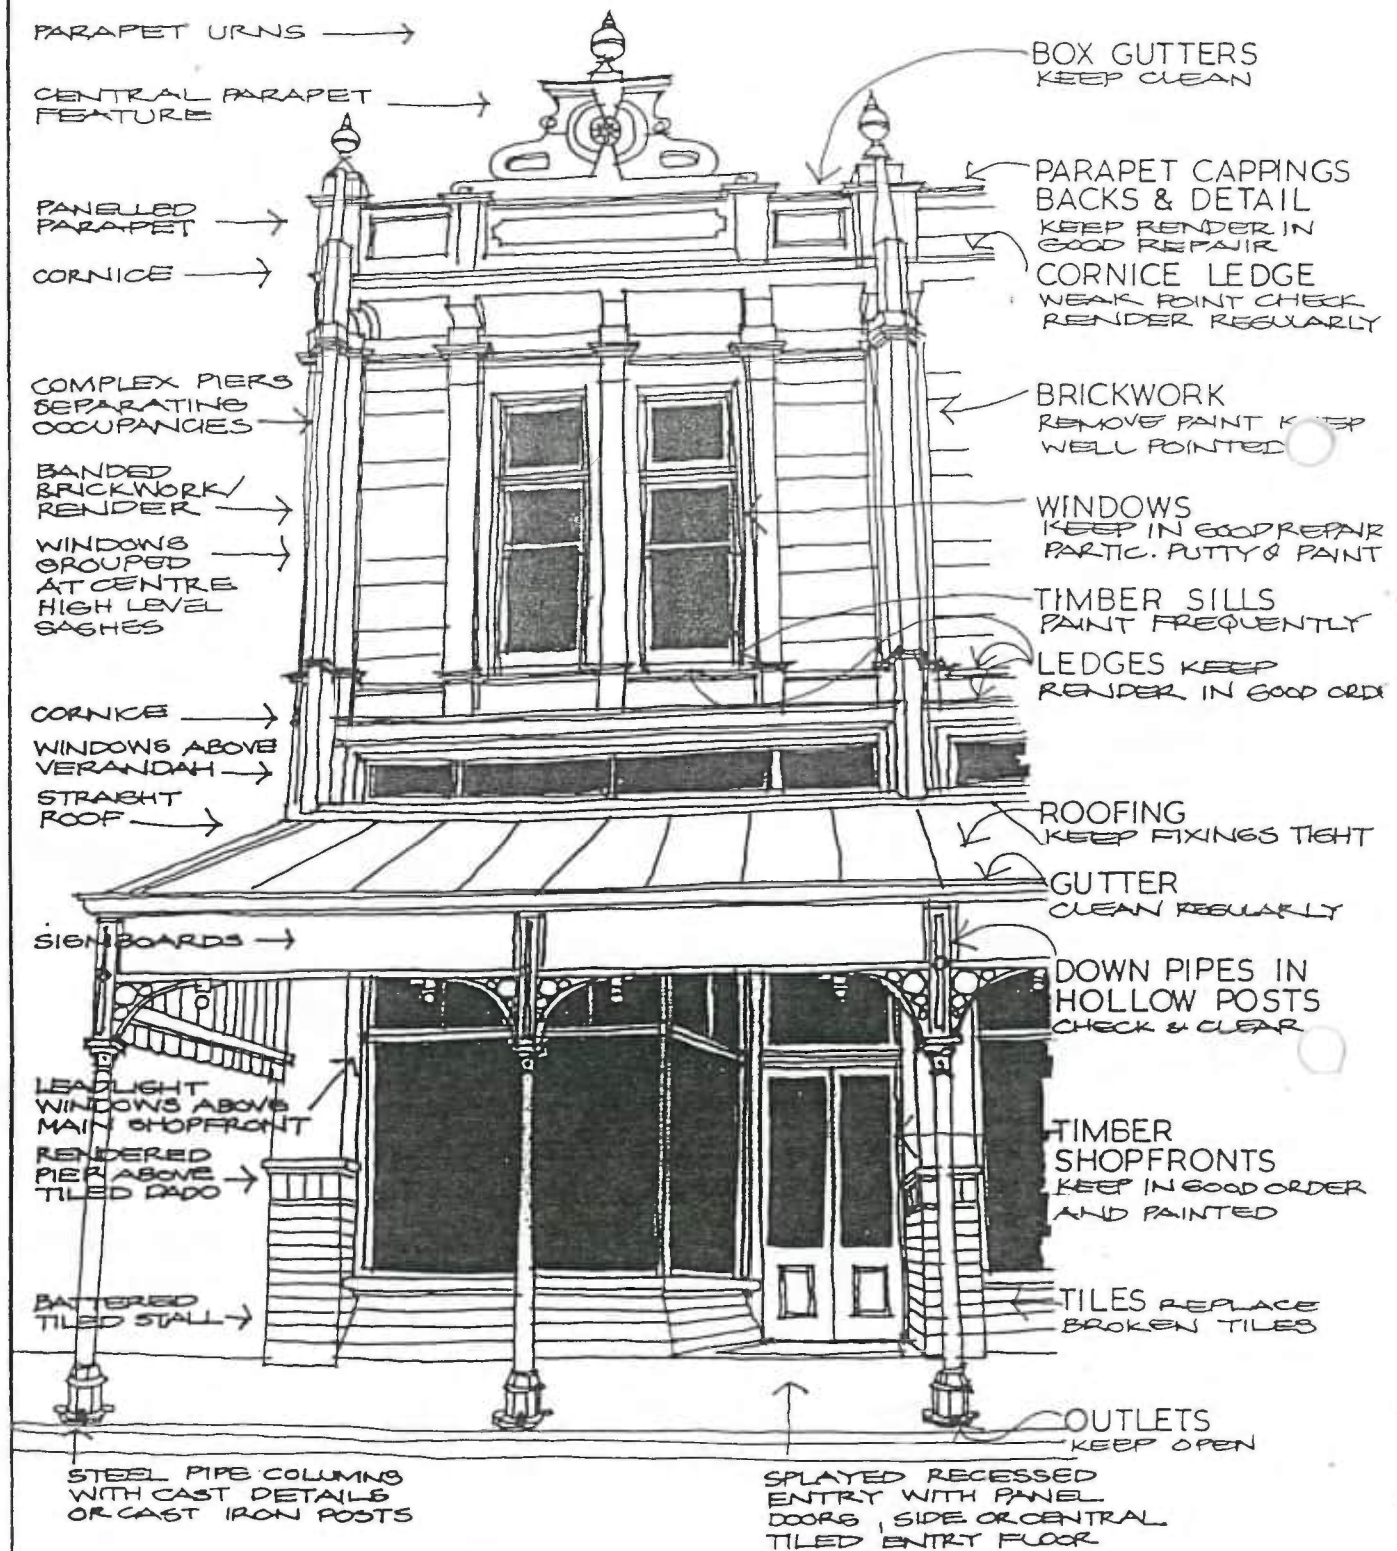 PARAPET URNS
CENTRAL PARAPET
FEATURE
PANELLED
PARAPET
CORNICE
COMPLEX PIERS
SEPARATING
OCCUPANCIES
BANDED
BRICKWORK/
RENDER
WINDOWS
GROUPED
AT CENTRE
HIGH LEVEL
SASHES
CORNICE
WINDOWS ABOVE
VERANDAH
STRAIGHT
ROOF
SIGNBOARDS
LEADLIGHT
WINDOWS ABOVE
MAIN SHOPFRONT
RENDERED
PIER ABOVE
TILED DADO
BATTERED
TILED STALL
STEEL PIPE COLUMNS
WITH CAST DETAILS
OR CAST IRON POSTS
BOX GUTTERS
KEEP CLEAN
PARAPET CAPPINGS
BACKS & DETAIL
KEEP RENDER IN
GOOD REPAIR
CORNICE LEDGE
WEAK POINT CHECK
RENDER REGULARLY
BRICKWORK
REMOVE PAINT KEEP
WELL POINTED
WINDOWS
KEEP IN GOOD REPAIR
PARTIC. PUTTY & PAINT
TIMBER SILLS
PAINT FREQUENTLY
LEDGES KEEP
RENDER IN GOOD ORDE
ROOFING
KEEP FIXINGS TIGHT
GUTTER
CLEAN REGULARLY
DOWN PIPES IN
HOLLOW POSTS
CHECK & CLEAR
TIMBER
SHOPFRONTS
KEEP IN GOOD ORDER
AND PAINTED
TILES REPLACE
BROKEN TILES
OUTLETS
KEEP OPEN
SPLAYED RECESSED
ENTRY WITH PANEL
DOORS, SIDE OR CENTRAL
TILED ENTRY FLOOR